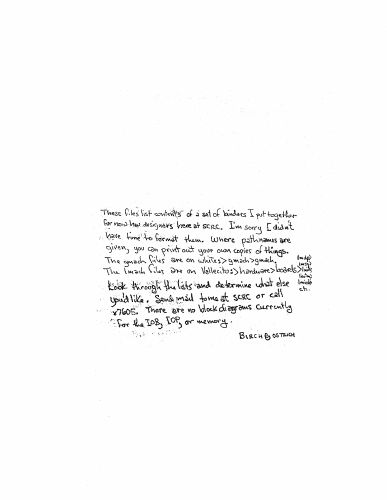 These files list contents of a set of binders I put together
for new hw designers here at SCRC. I'm sorry I didn't
have time to format them. Where pathnames are
given, you can print out your own copies of things.
The files are on >gmach>gmach,
The files are on Vallecitos>hardware>boards>
Look through the lists and determine what else
you'd like. Send mail to me at SCRC or call
x7605. There are no block diagrams currently
for the IOB, IOP, or memory.